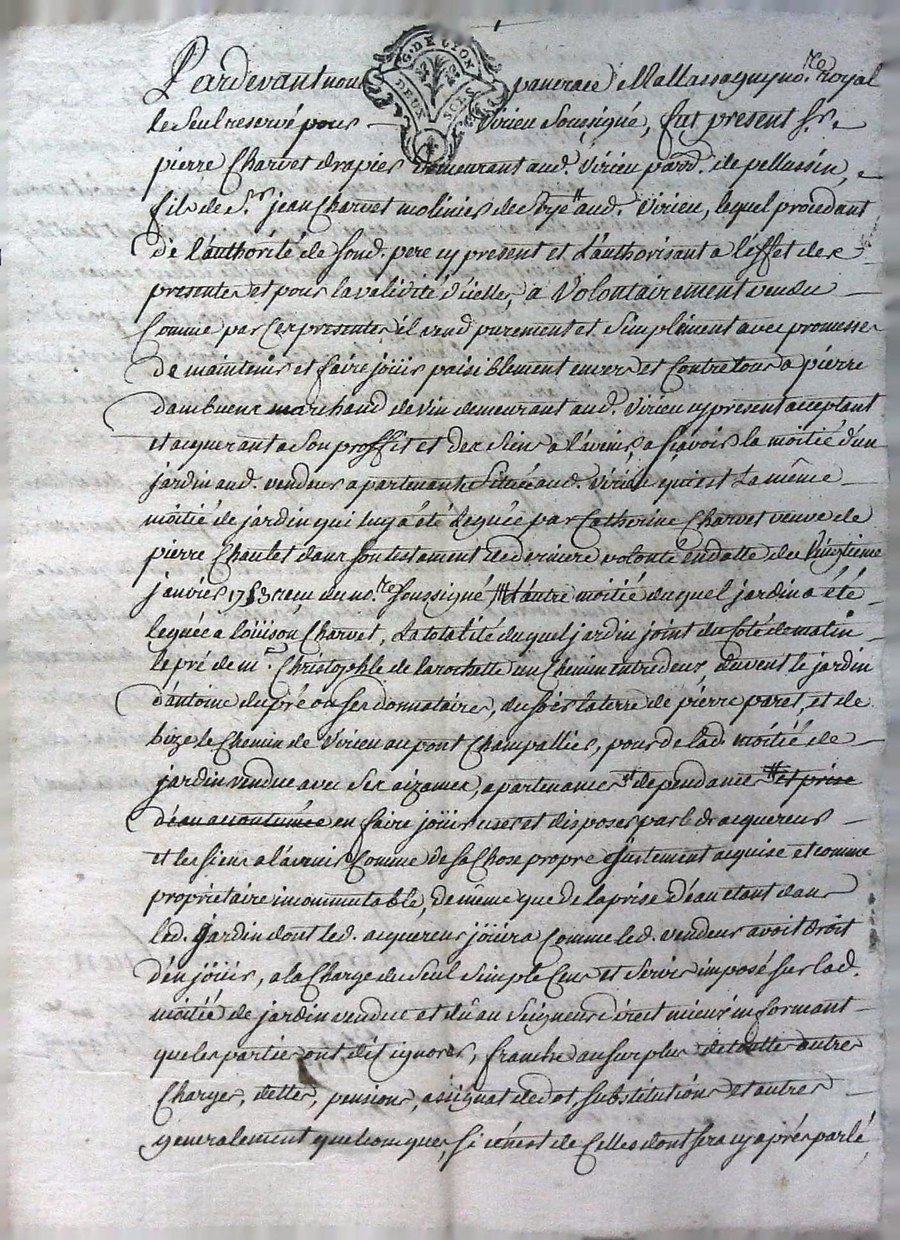 G. DE LYON
DEUX SOLS
Pardevant nous pancrace Mallassagny no.re Royal
le Seul reservé pour Virieu Soussigné, fut present S.r
pierre Charvet drapier demeurant aud. Virieu par.d de pellussin,
fils de S.r jean Charvet molinier de Soye aud. Virieu, lequel procedant
de l'authorité de sond. pere cy present et l'authorisant a l'effet des
presentes et pour la validité d'icelles, à Volontairement vendu
Comme par Ces presentes il vend purement et Simplement avec promesses
de maintenir et faire joüir paisiblement envers et Contre tous a pierre
dambuent marchand de vin demeurant aud. Virieu cy present acceptant
et acquerant a Son proffit et des Siens a l'avenir, a sçavoir la moitié d'un
jardin aud. vendeur apartenante Situéé aud. Virieu qui est La même
moitié de jardin qui luy a été Leguée par Catherine Charvet veuve de
pierre Chaulet dans Son testament de derniere volonté en datte du Vingtieme
janvier reçu du no.re Soussigné, l'autre moitié duquel jardin a été
leguée a loüison Charvet, La totalité duquel jardin joint du Coté de matin
le pré de m.r Christophle de larochette un Chemin entredeux, du vent le jardin
d'antoine dupré ou Ses donnataires, du Soir la terre de pierre paret, et de
bize le Chemin de Virieu au pont Champallier, pour de lad. moitié de
jardin vendue avec Ses aizances, apartenances et dependances et prise
d'eau accoutumée en faire joüir user et disposer par led. acquereur
et les Siens a l'avenir Comme de Sa Chose propre justement acquise et comme
proprietaire incommutable, de même que de la prise d'eau etant dans
led. jardin dont led. acquereur joüira Comme led. vendeur avoit droit
d'en joüir, a la Charge du Seul Simple Cens et Servis imposé Sur lad.
moitié de jardin vendue et dû au Seigneur direct mieux informant
que les parties ont dit ignorer, franche au Surplus de toutte autres
Charges, dettes, pensions, assignat de dot substitutions et autres
generalement quelconques, Si ce n'est de Celles dont Sera cy aprés parlé